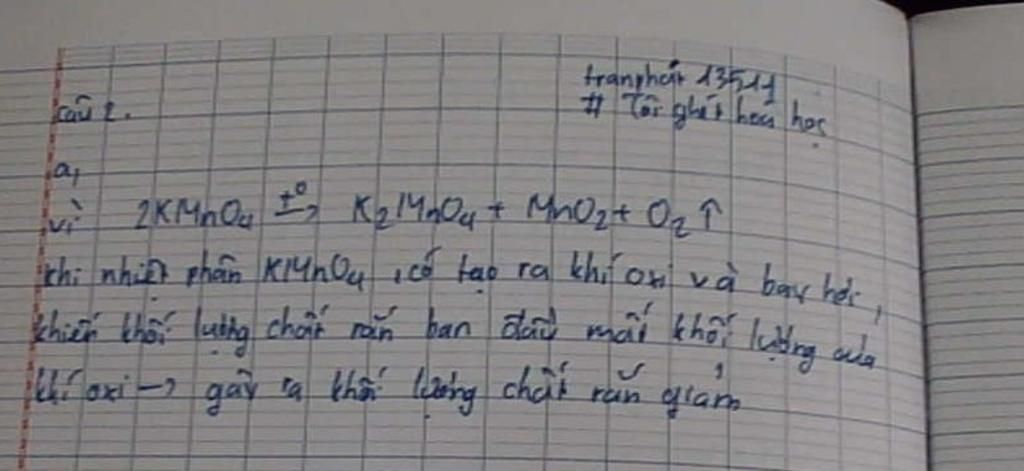 tranphát 13511
# Tôi ghét hoá học
Câu 2.
a,
vì 2KMnO₄ t⁰→ K₂MnO₄ + MnO₂ + O₂ ↑
khi nhiệt phân KMnO₄, có tạo ra khí oxi và bay hết,
khiến khối lượng chất rắn ban đầu mất khối lượng của
khí oxi → gây ra khối lượng chất rắn giảm